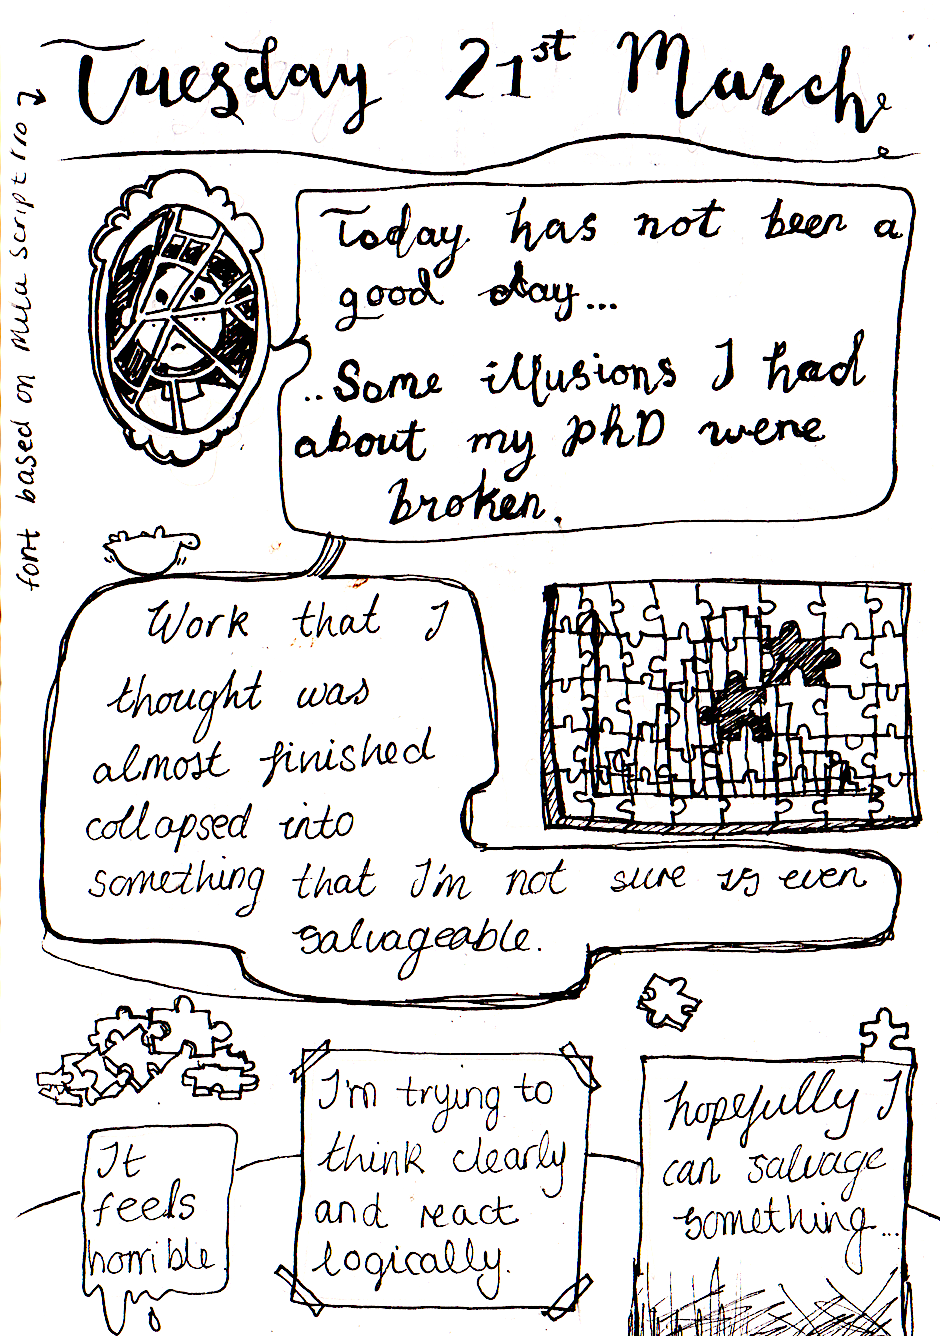 Tuesday 21st March
font based on Mila Script Pro
Today has not been a
good day...
..Some illusions I had
about my phD were
broken.
Work that I
thought was
almost finished
collapsed into
something that I'm not sure is even
salvageable.
It
feels
horrible.
I'm trying to
think clearly
and react
logically.
hopefully I
can salvage
something...